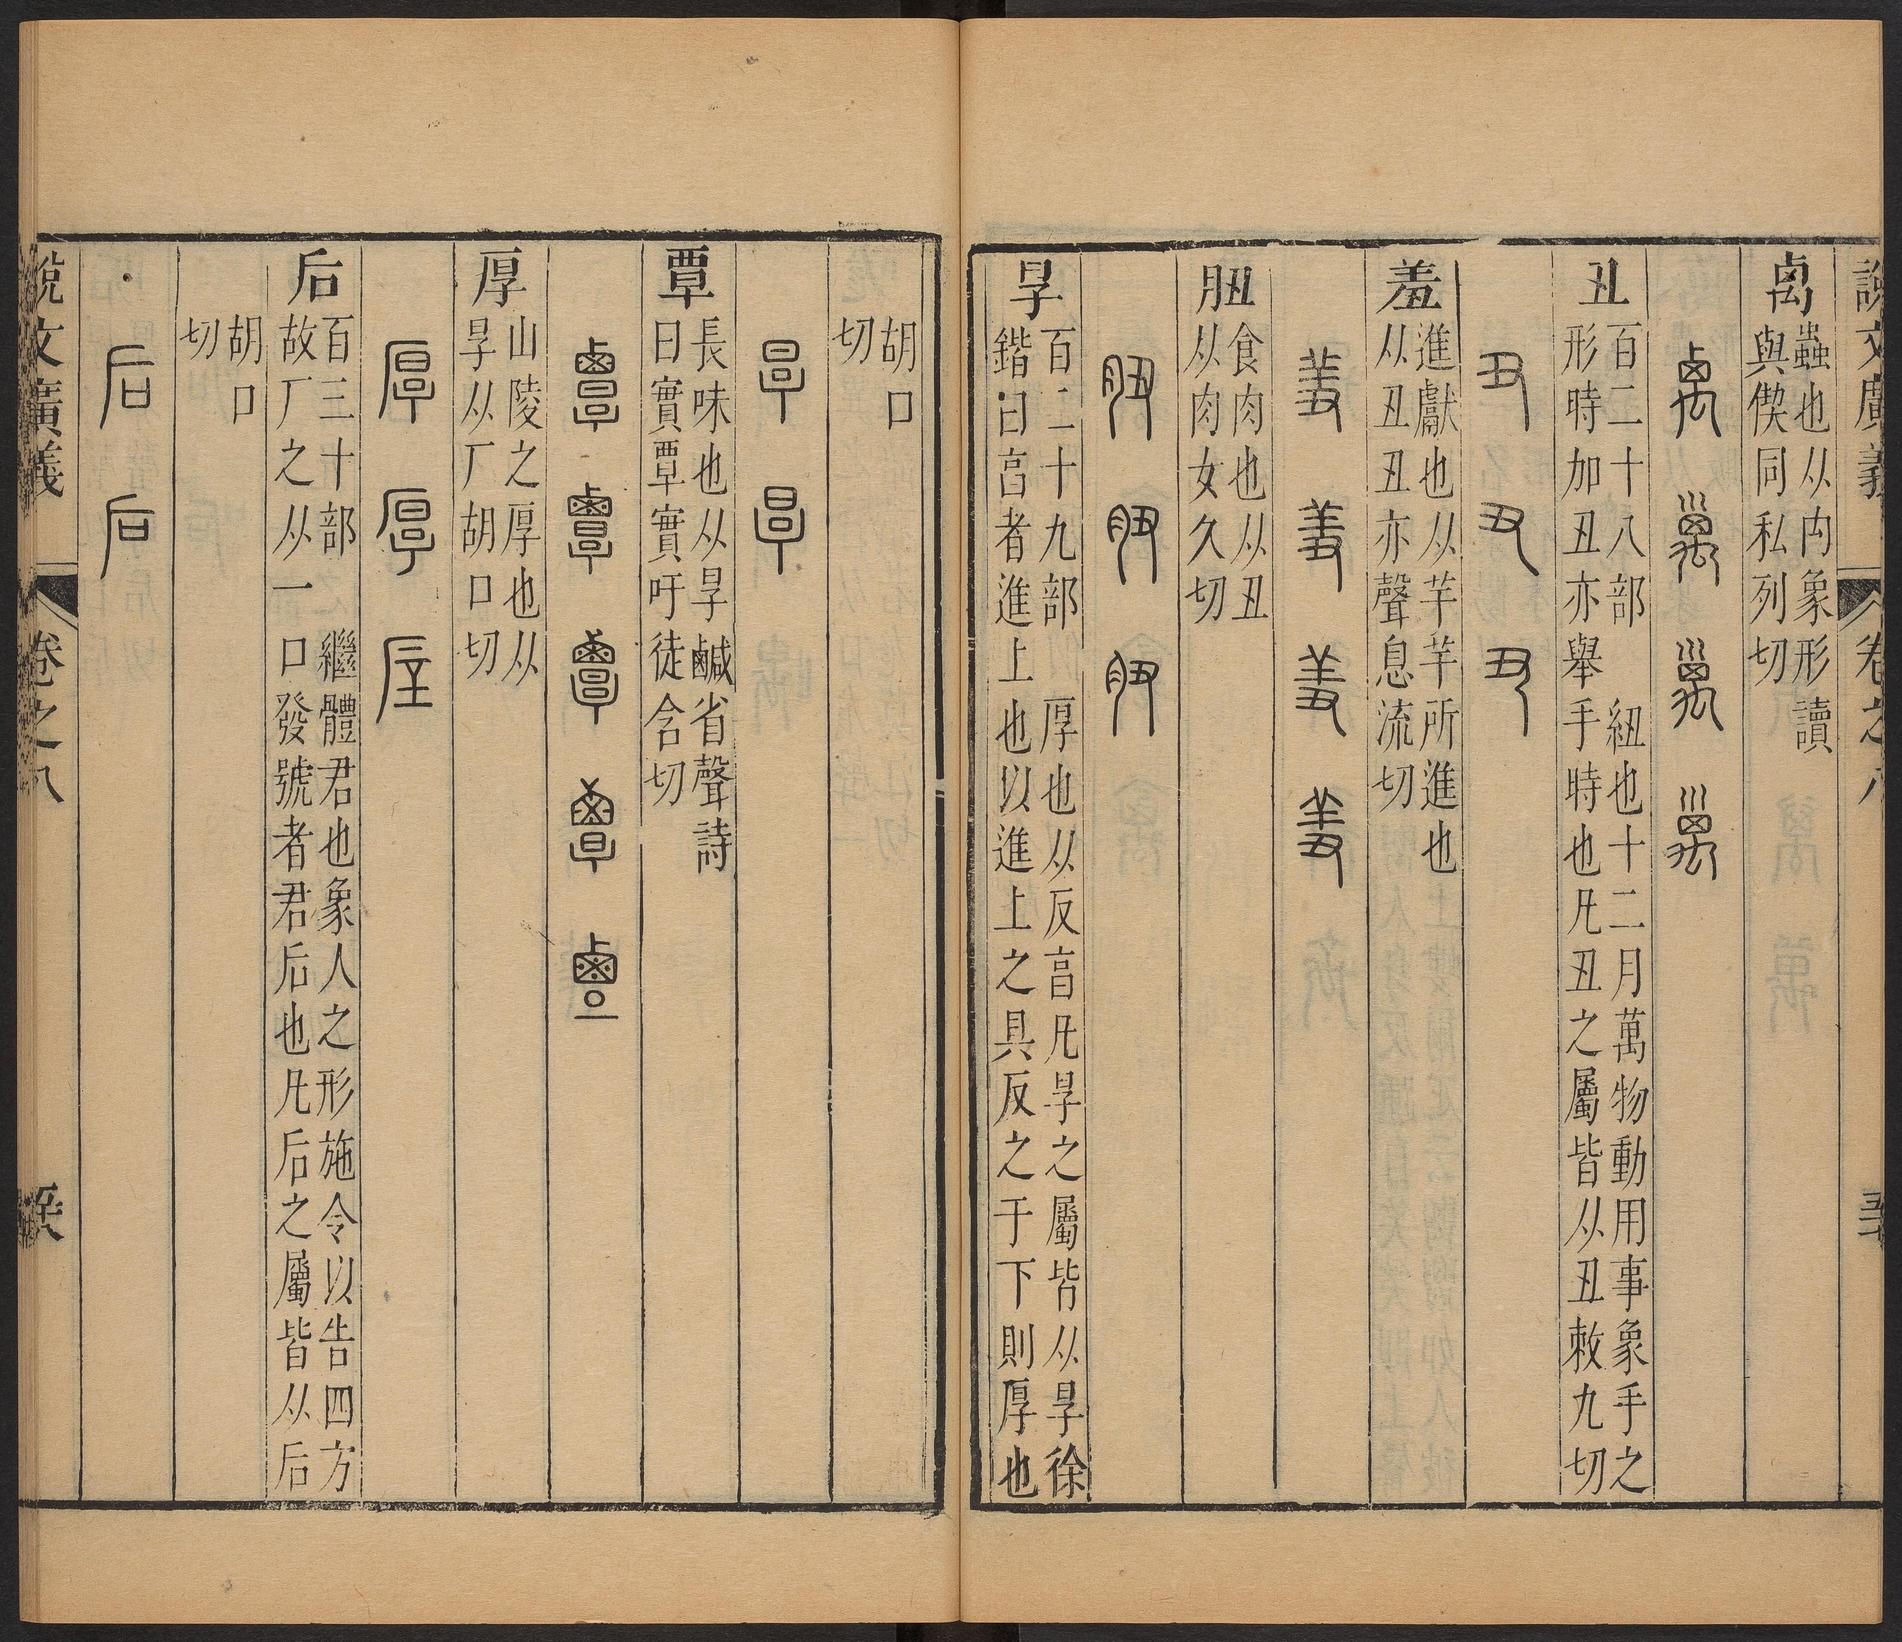 說文廣義
卷之八
禼
蟲也从禸象形讀
與偰同私列切
丑
百二十八部 紐也十二月萬物動用事象手之
形時加丑亦舉手時也凡丑之屬皆从丑敕九切
羞
進獻也从羊羊所進也
从丑丑亦聲息流切
䏔
食肉也从丑
从肉女久切
㫗
百二十九部 厚也从反亯凡㫗之屬皆从㫗徐
鍇曰亯者進上也以進上之具反之于下則厚也
胡口
切
㫗 㫗
覃
長味也从㫗鹹省聲詩
曰實覃實吁徒含切
厚
山陵之厚也从
㫗从厂胡口切
厚 厚 垕
后
百三十部 繼體君也象人之形施令以告四方
故厂之从一口發號者君后也凡后之屬皆从后
胡口
切
后 后
說文廣義
卷之八